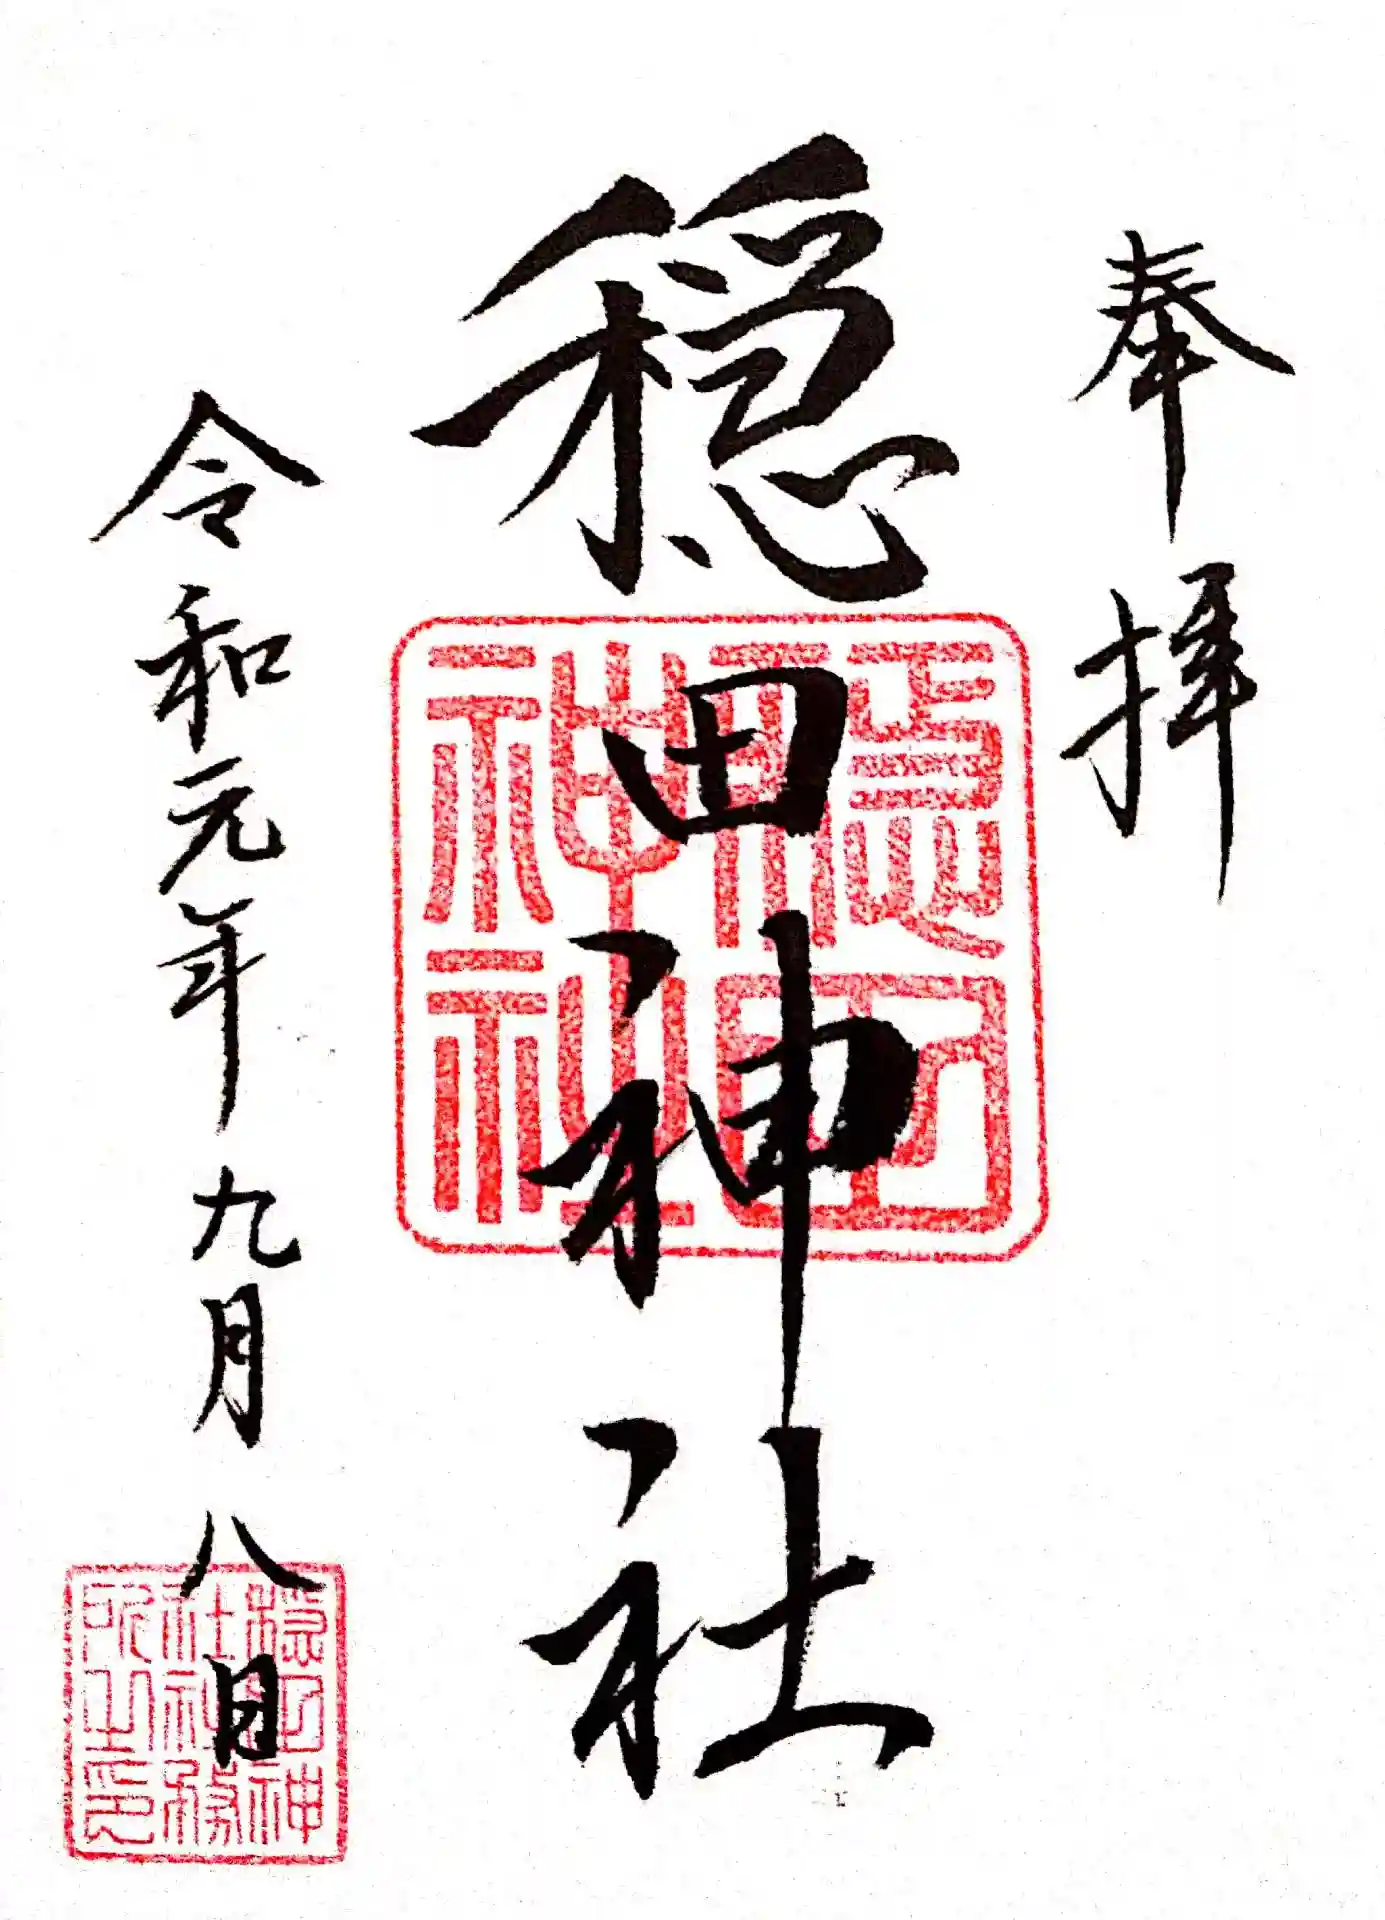 奉拝
穏田神社
穏田神社
令和元年九月八日
穏田神
社社務
所之印